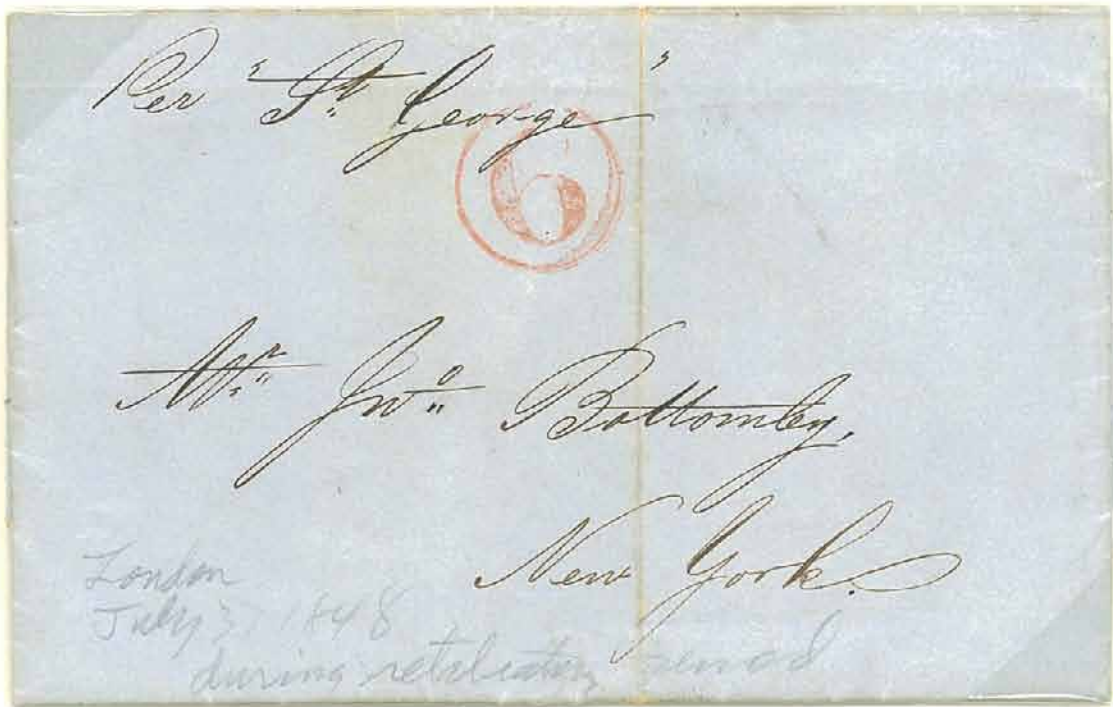 Per "St. George"
6
Mr. Jno. Bottomley,
New York.
London
July 3 1848
during retaliatory period